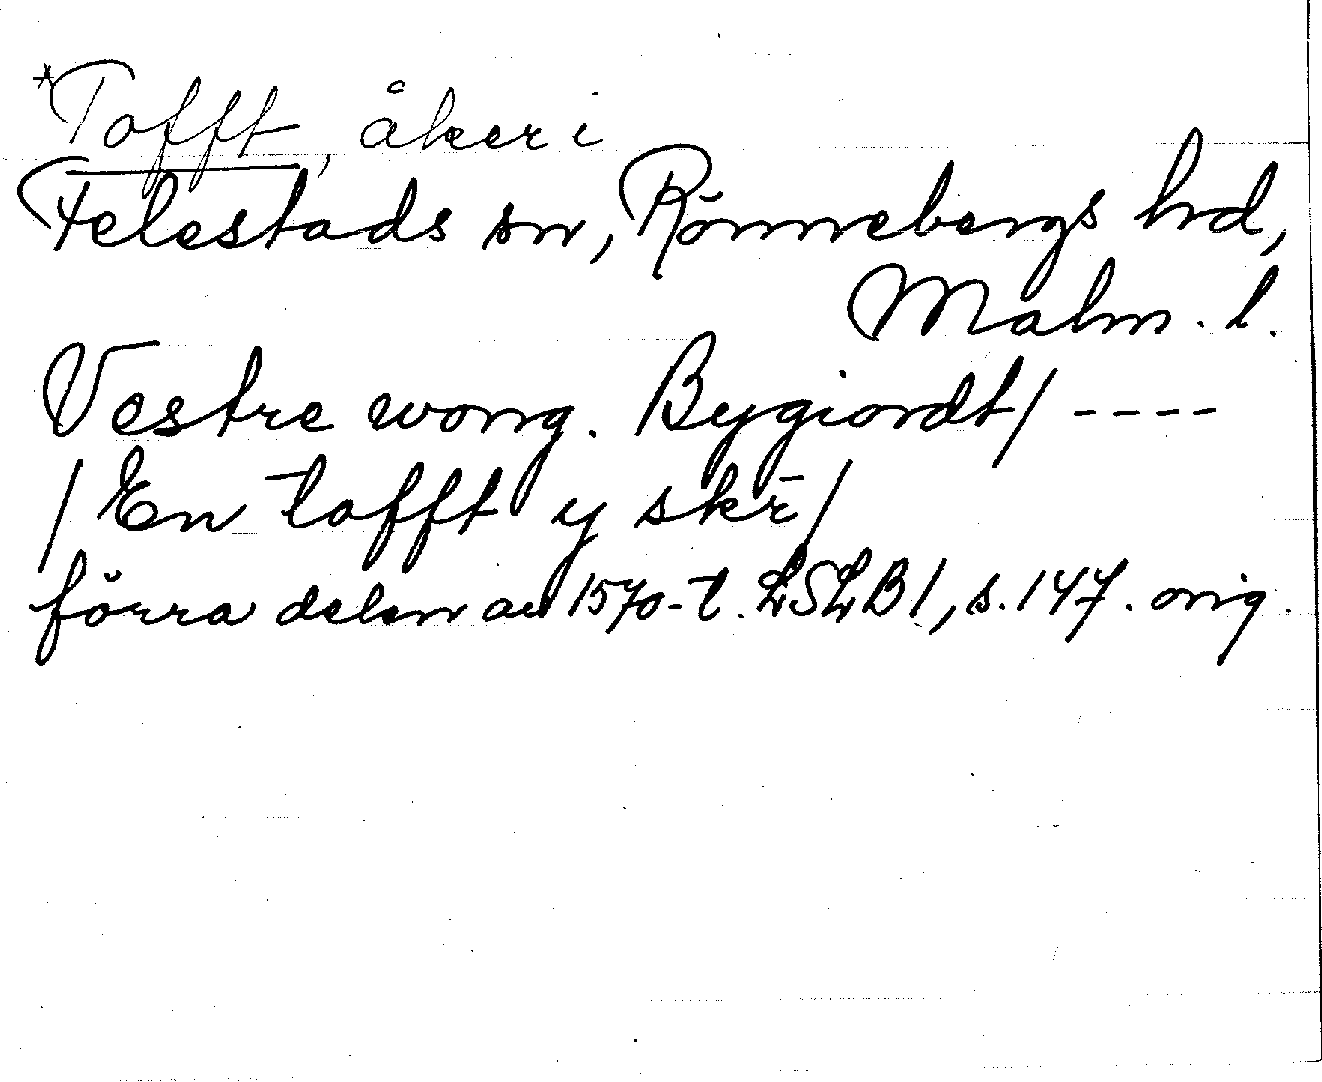 *Tofft, åker i
Felestads sn, Rönnebergs hd,
Malm. l.
Vestre wong. Bygiordt/ ----
/En tofft y skr̄/
förra delen av 1570-t. LSLB1, s. 147. orig.